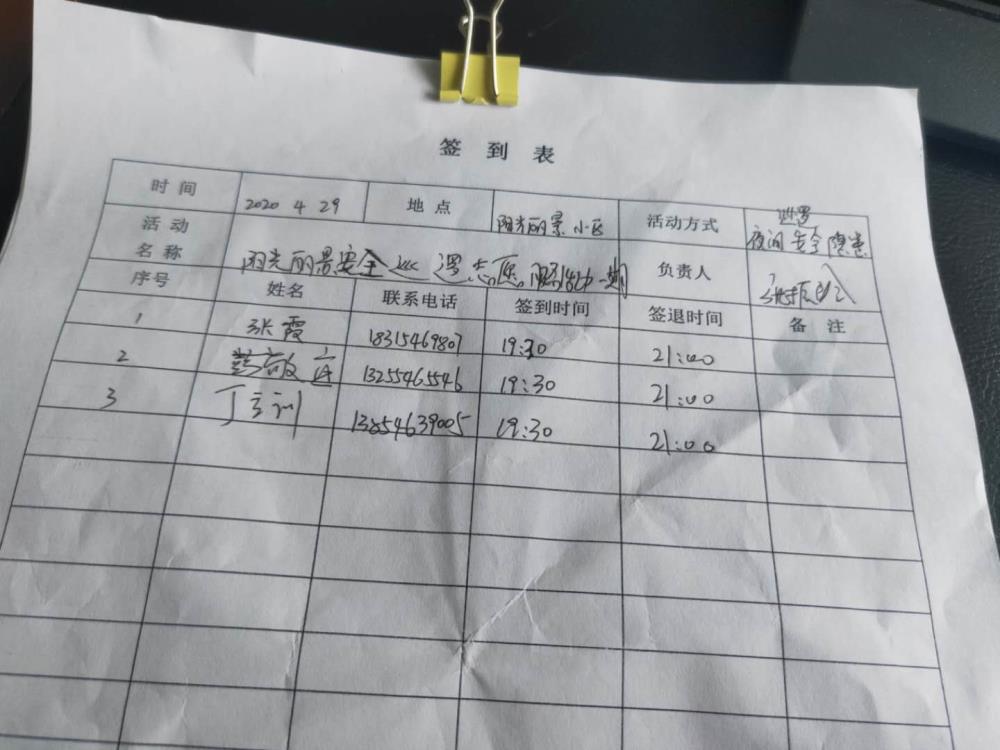 签到表
时间 2020 4 29 地点 阳光丽景小区 活动方式 巡逻
夜间安全隐患
活动
名称 阳光丽景安全巡逻志愿服务活动一期 负责人
序号 姓名 联系电话 签到时间 签退时间 备注
1 张霞 18315469807 19:30 21:00
2 13255465546 19:30 21:00
3 丁 13854639005 19:30 21:00